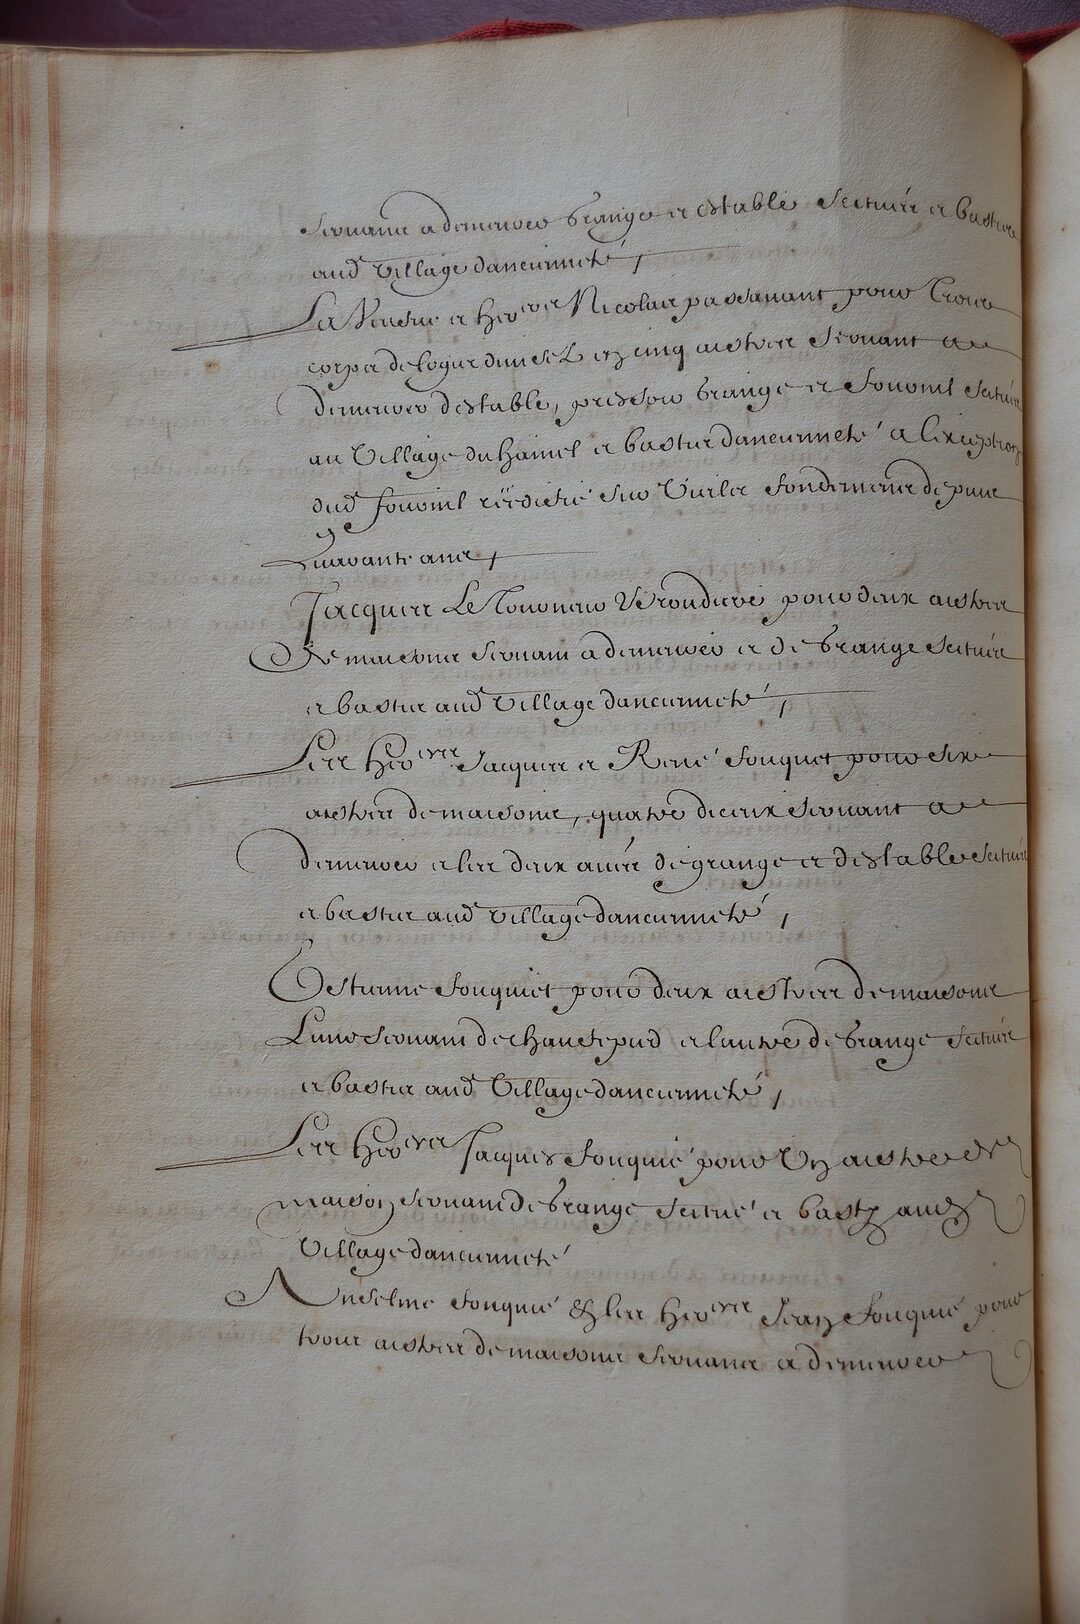 servans a demeurer grange et estable scituéz et bastiz
aud village danecinneté,
La Veufue et her^ers Nicolas passauant pour trois
corps de logis dun set en cinq aistres seruant a
demeurer destable, pressoir grange et fournil scitués
au Village du hamel et bastis danecinneté a lexception
dud fournil réédifié sur vieils fondemens depuis
quarante ans,
Jacques Le Tourneur Verondiere pour deux aistres
de maisons seruant a demeurer et de grange scitués
et bastis aud village danecinneté,
Les her^ers Jacques et René fouquet pour six
aistres de maisons, quatre diceux seruant a
demeurer et les deux autres de grange et destable scitués
et bastis aud village danecinneté,
Estienne fouquet pour deux aistres de maisons
Lun seruant de chartepied et lautre de grange scitués
et bastis aud village danecinneté,
Les her^ers Jacques fouquié pour un aistre de
maison seruant de grange scitué et basty aud
village danecinneté
Anselme fouquié & les her^ers Jean fouquié pour
trois aistres de maisons seruans a demeurer